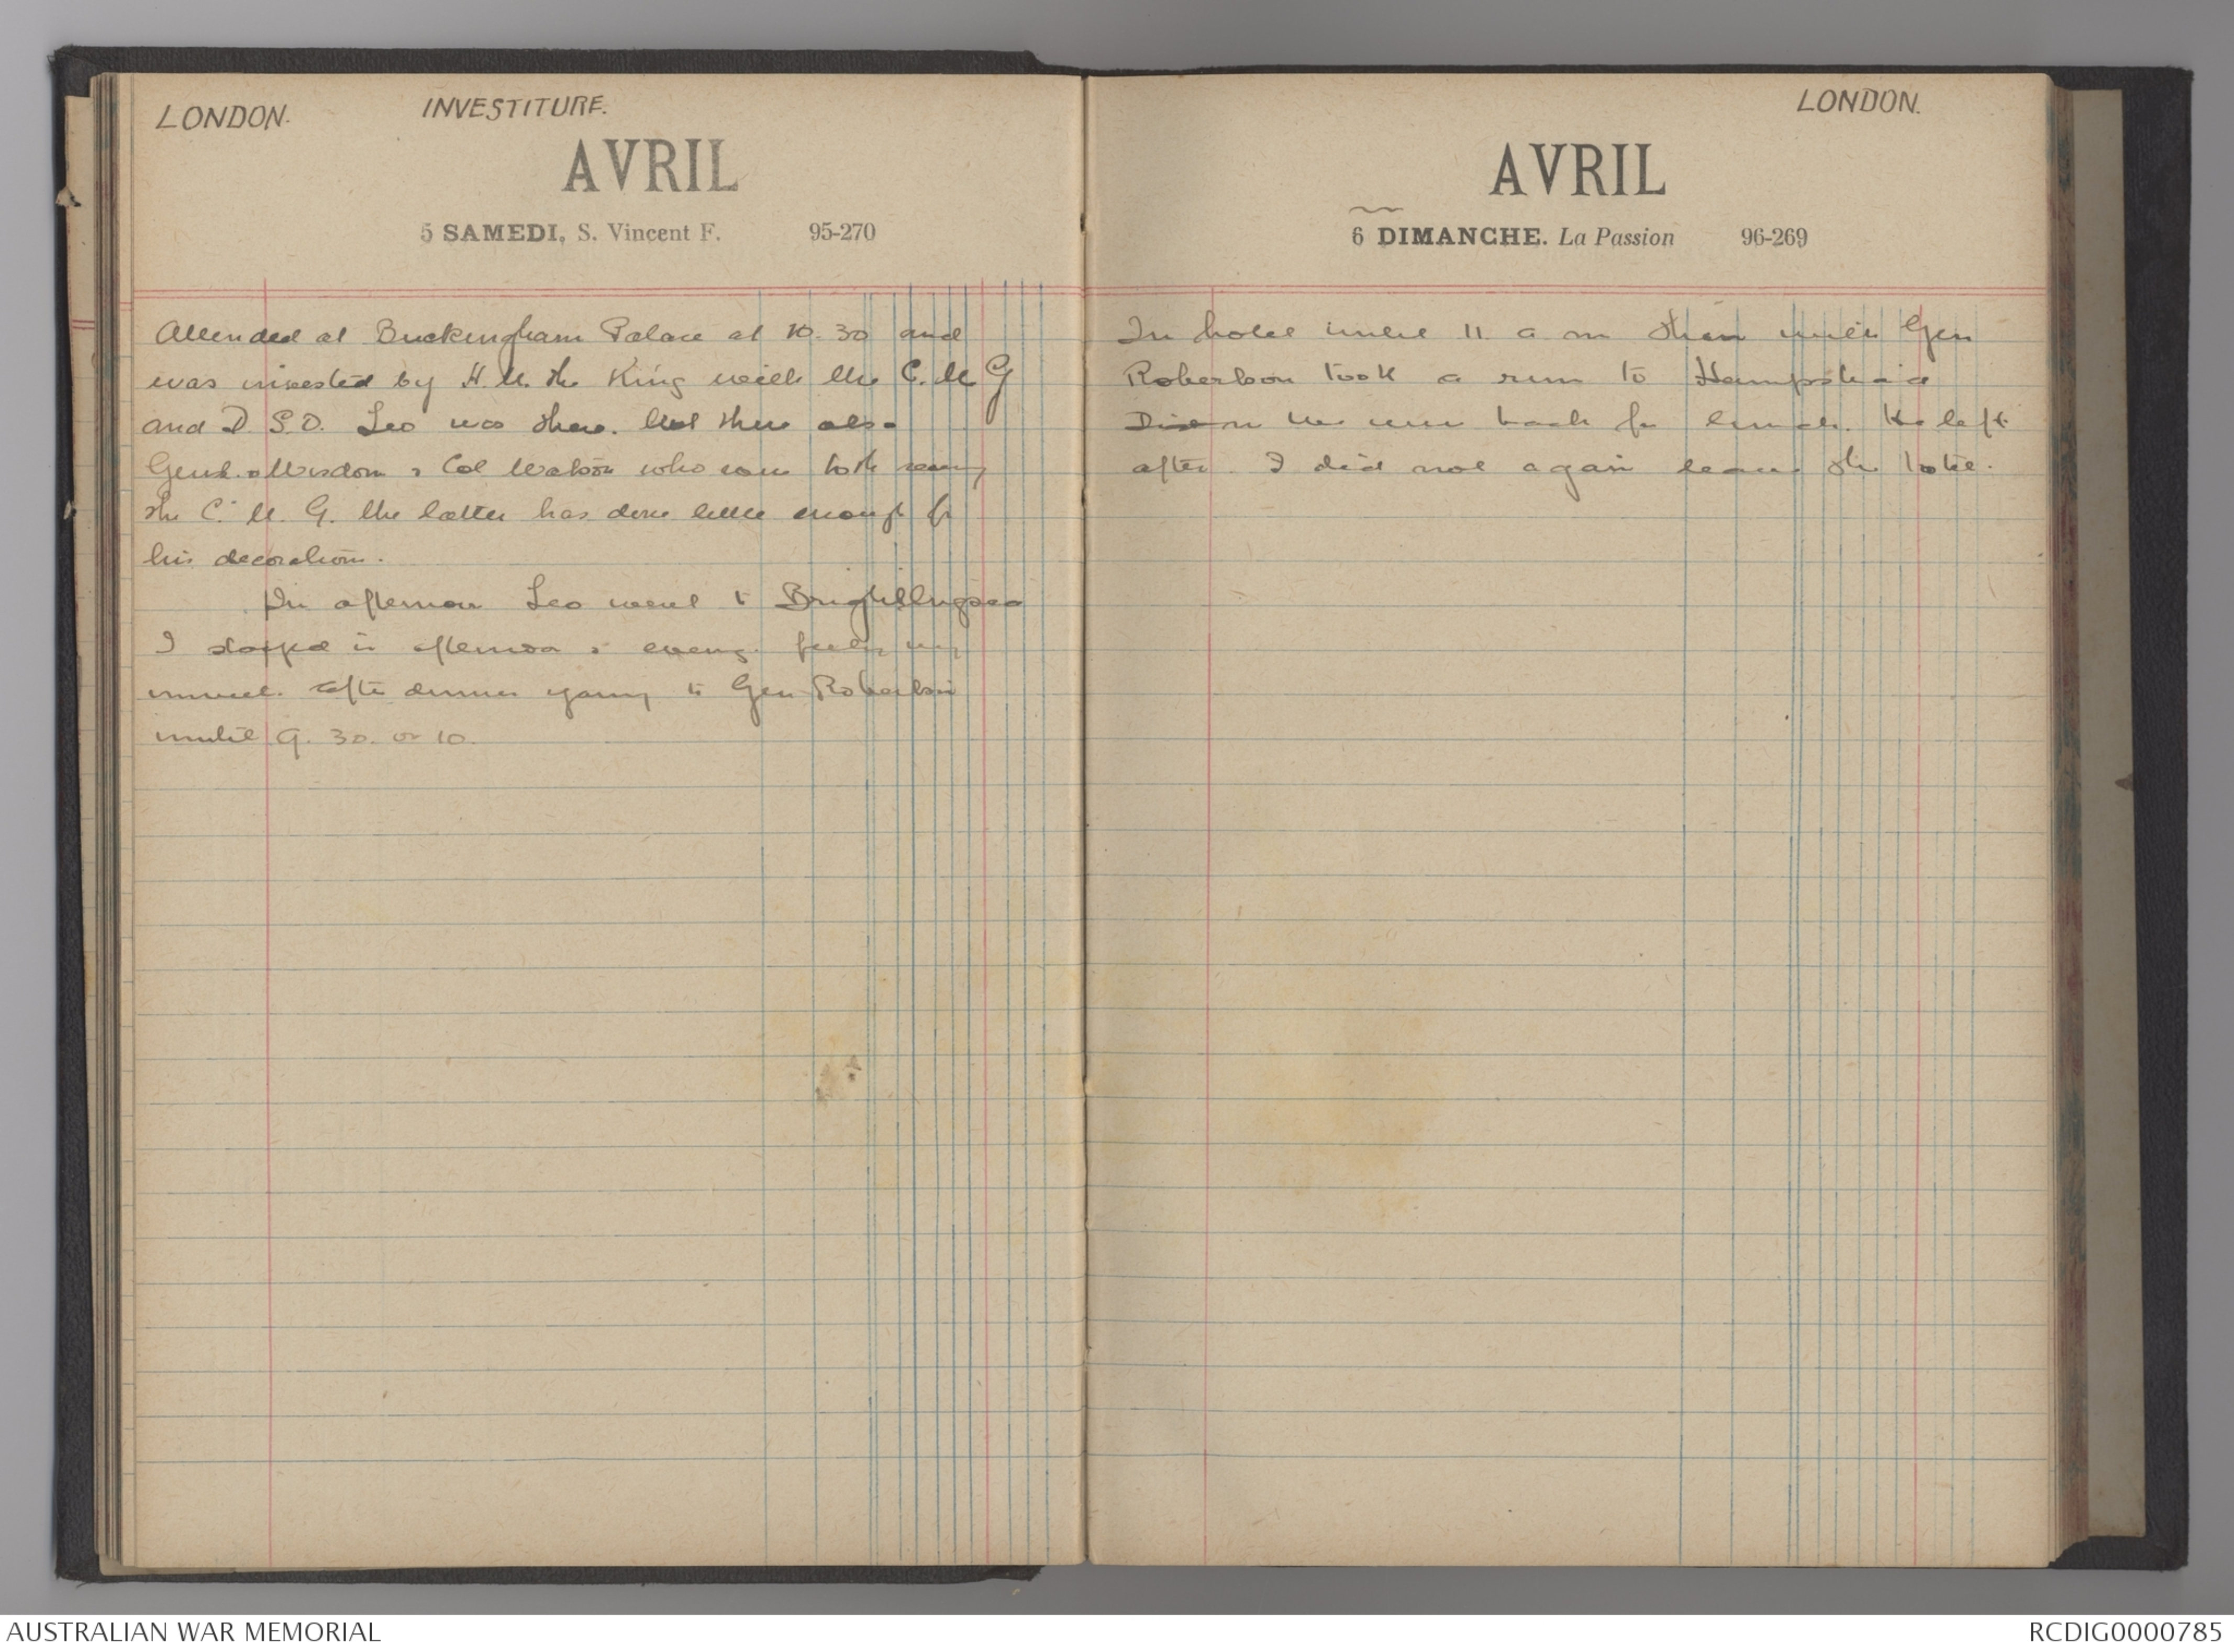 LONDON. INVESTITURE.
AVRIL
5 SAMEDI, S. Vincent F. 95-270
Attended at Buckingham Palace at 10.30 and
was invested by H.M. the King with the C.M.G
and D.S.O. Leo was there. Met there also
Wisdom & Col Watson who were both
the C.M.G. the latter has done little enough for
his decoration.
In afternoon Leo went to Brightlingsea
I stopped in afternoon & evening feeling very
unwell. After dinner yarning to Gen Robertson
until 9.30. or 10.
LONDON.
AVRIL
6 DIMANCHE. La Passion 96-269
In hotel until 11 a m then with Gen
Robertson took a run to Hampstead
We were back for lunch. He left
after. I did not again leave the hotel.
AUSTRALIAN WAR MEMORIAL
RCDIG0000785